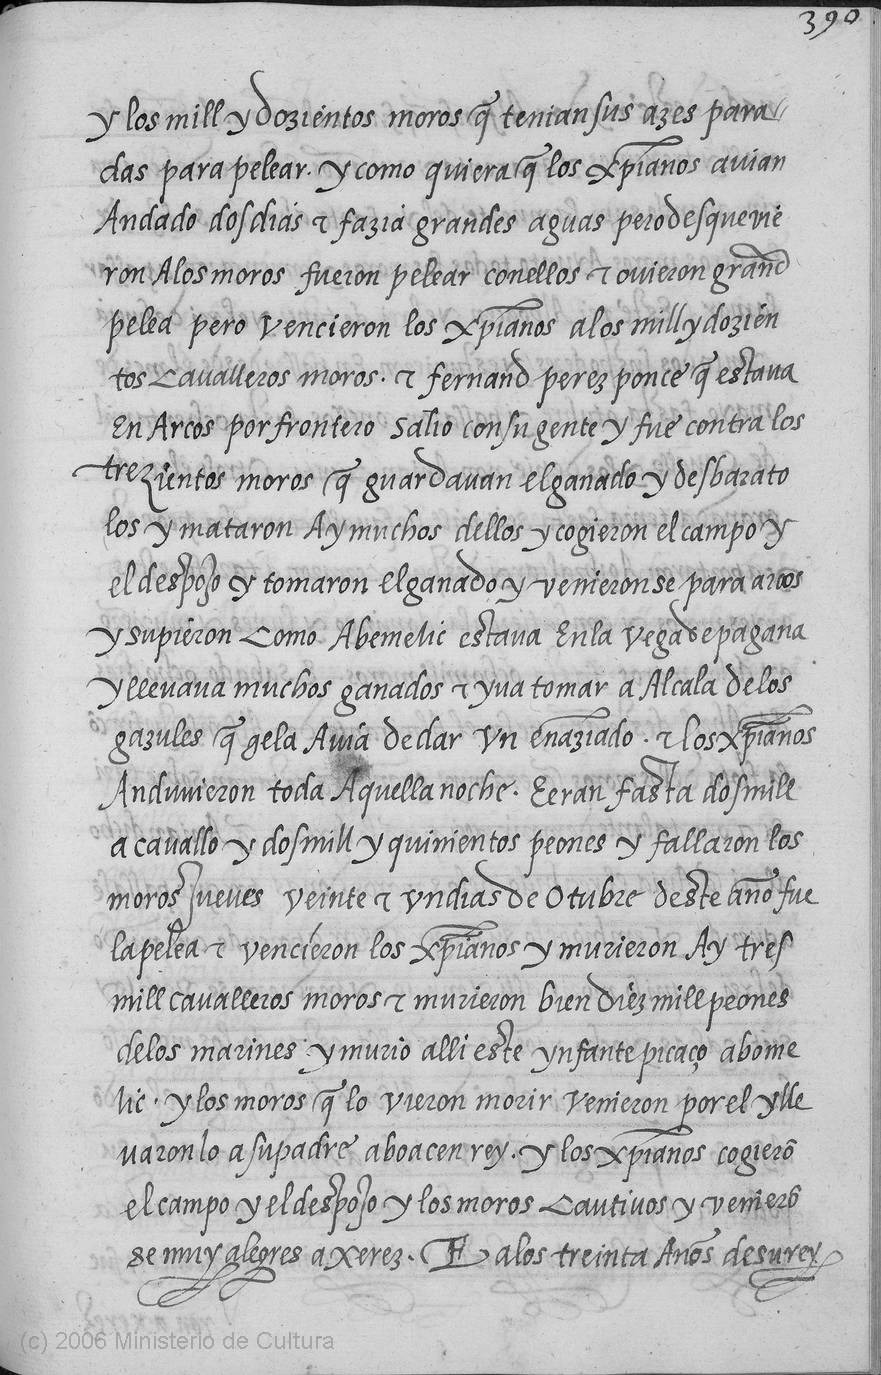 390
y los mill y dozientos moros q̃ tenian sus azes para
das para pelear. y como quiera q̃ los xp̃ianos auian
Andado dos dias τ fazia grandes aguas pero desque vie
ron A los moros fueron pelear con ellos τ ouieron grand
pelea pero vencieron los xp̃ianos a los mill y dozien
tos cavalleros moros. τ fernand perez ponce q̃ estava
En Arcos por frontero salio con su gente y fue contra los
trezientos moros q̃ guardavan el ganado y desbarato
los y mataron Ay muchos dellos y cogieron el campo y
el despojo y tomaron el ganado y venieronse para arcos
y supieron como Abemelic estava En la vega de pagana
y llevava muchos ganados τ yva tomar a Alcala de los
gazules q̃ gela Auia de dar vn enaziado. τ los xp̃ianos
Anduvieron toda Aquella noche. E eran fasta dos mill
a cavallo y dos mill y quinientos peones y fallaron los
moros jueves veinte τ vn dias de Otubre deste año fue
la pelea τ vencieron los xp̃ianos y murieron Ay tres
mill cavalleros moros τ murieron bien diez mill peones
de los marines y murio alli este ynfante picaço abome
lic. y los moros q̃ lo vieron morir venieron por el y lle
varon lo a su padre aboacen rey. y los xp̃ianos cogierõ
el campo y el despojo y los moros cautivos y venierõ
se muy alegres a xerez. E a los treinta Años de su rey
(c) 2006 Ministerio de Cultura